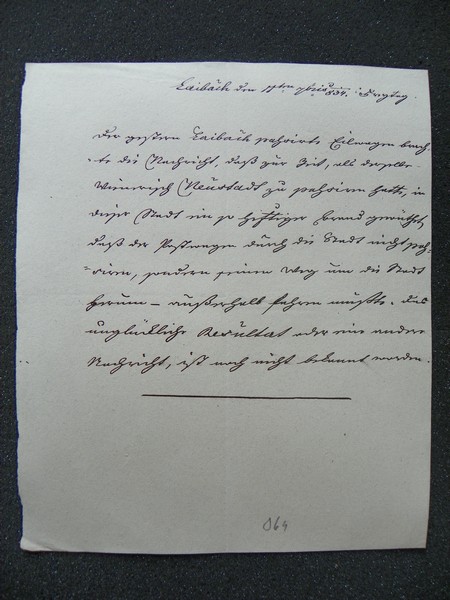 Laibach den 11ten 7bris 834. Freytag.
Der gestern Laibach passirte Eilwagen brach-
-te die Nachricht, daß zur Zeit, als derselbe
Wienerisch Neustadt zu passiren hatte, in
dieser Stadt ein so heftiger Brand gewüthet,
daß der Postwagen durch die Stadt nicht pas-
-siren, sondern seinen Weg um die Stadt
herum – außerhalb fahren mußte. Das
unglückliche Resultat oder eine andere
Nachricht, ist noch nicht bekannt worden.
064